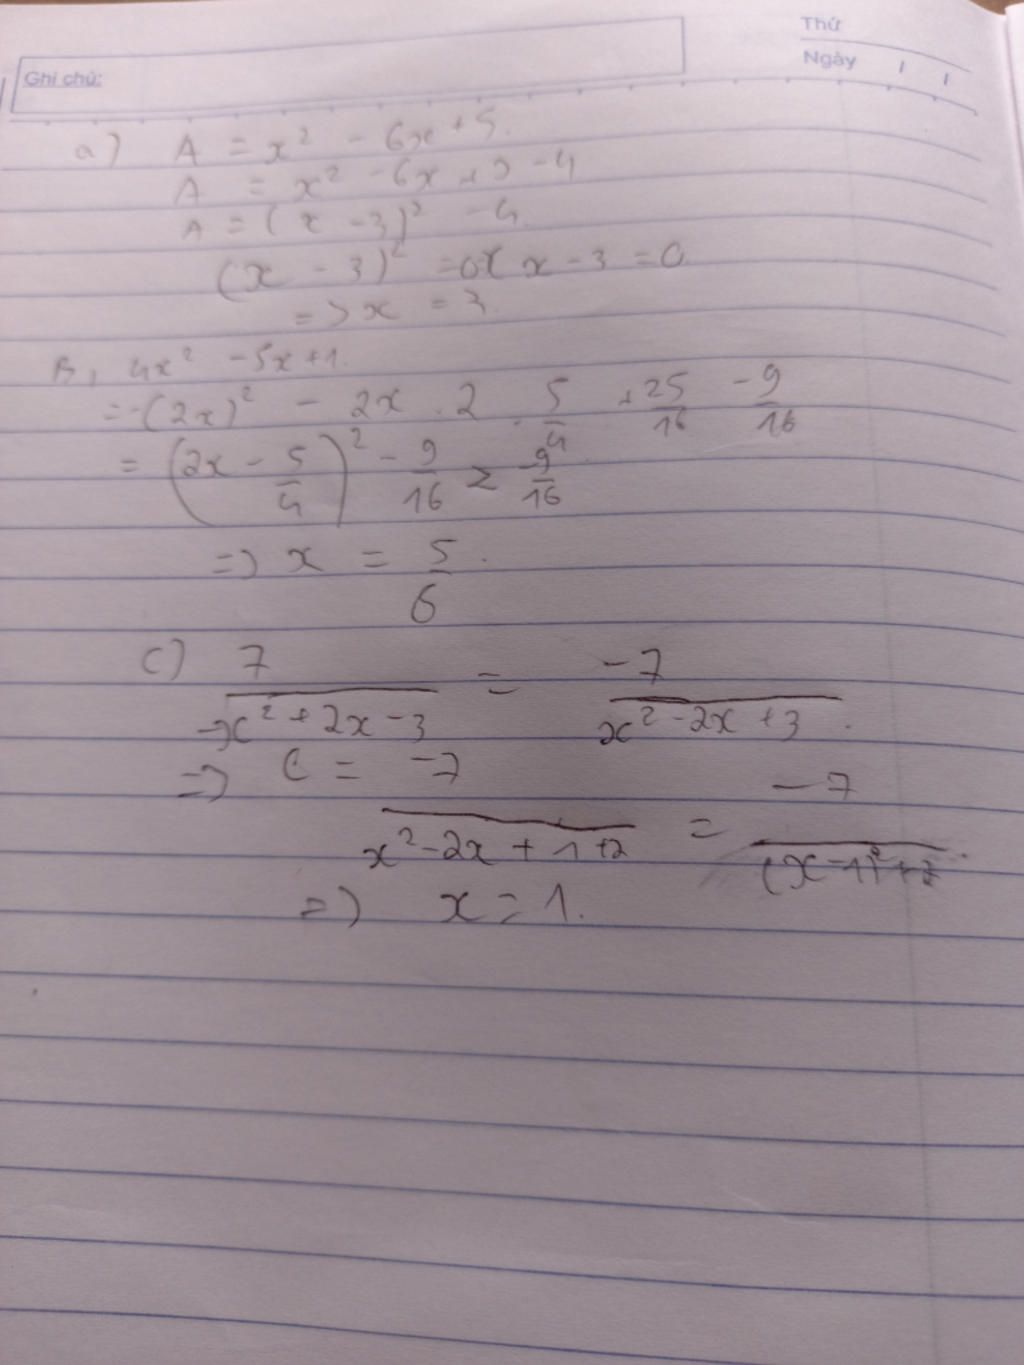 Thứ
Ghi chú:
Ngày / /
a) A = x² - 6x + 5.
A = x² - 6x + 9 - 4
A = (x - 3)² - 4
(x - 3)² = 0 x - 3 = 0
=> x = 3.
B, 4x² - 5x + 1.
= (2x)² - 2x . 2 . 5/4 + 25/16 - 9/16
= (2x - 5/4)² - 9/16 ≥ -9/16
=> x = 5/6.
c) 7/(-x² + 2x - 3) = -7/(x² - 2x + 3).
=> C = -7/(x² - 2x + 1 + 2) = -7/((x - 1)² + 2).
=> x = 1.